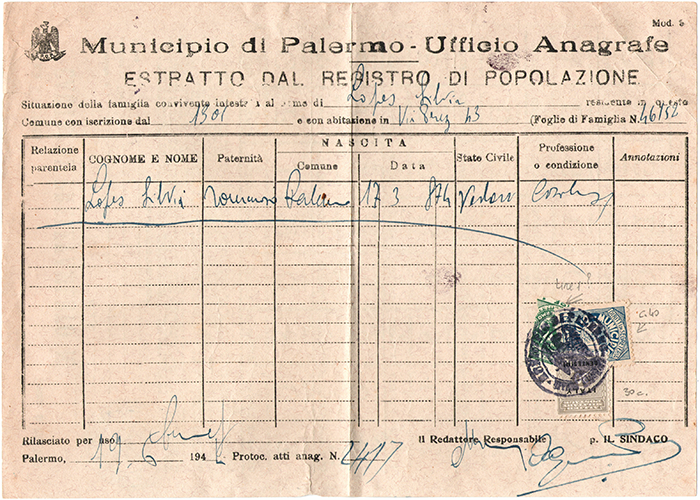 Mod. 5
Municipio di Palermo - Ufficio Anagrafe
ESTRATTO DAL REGISTRO DI POPOLAZIONE
Situazione della famiglia convivente intestata al nome di Lopes Silvia residente in questo
Comune con iscrizione dal 1301 e con abitazione in Via Perez 43 (Foglio di Famiglia N. 46152
NASCITA
Relazione parentela COGNOME E NOME Paternità Comune Data Stato Civile Professione o condizione Annotazioni
Lopes Silvia Palermo 17 3 874
lire 1
30 c.
Rilasciato per uso
Il Redattore Responsabile p. IL SINDACO
Palermo, 19 194 Protoc. atti anag. N. 2417